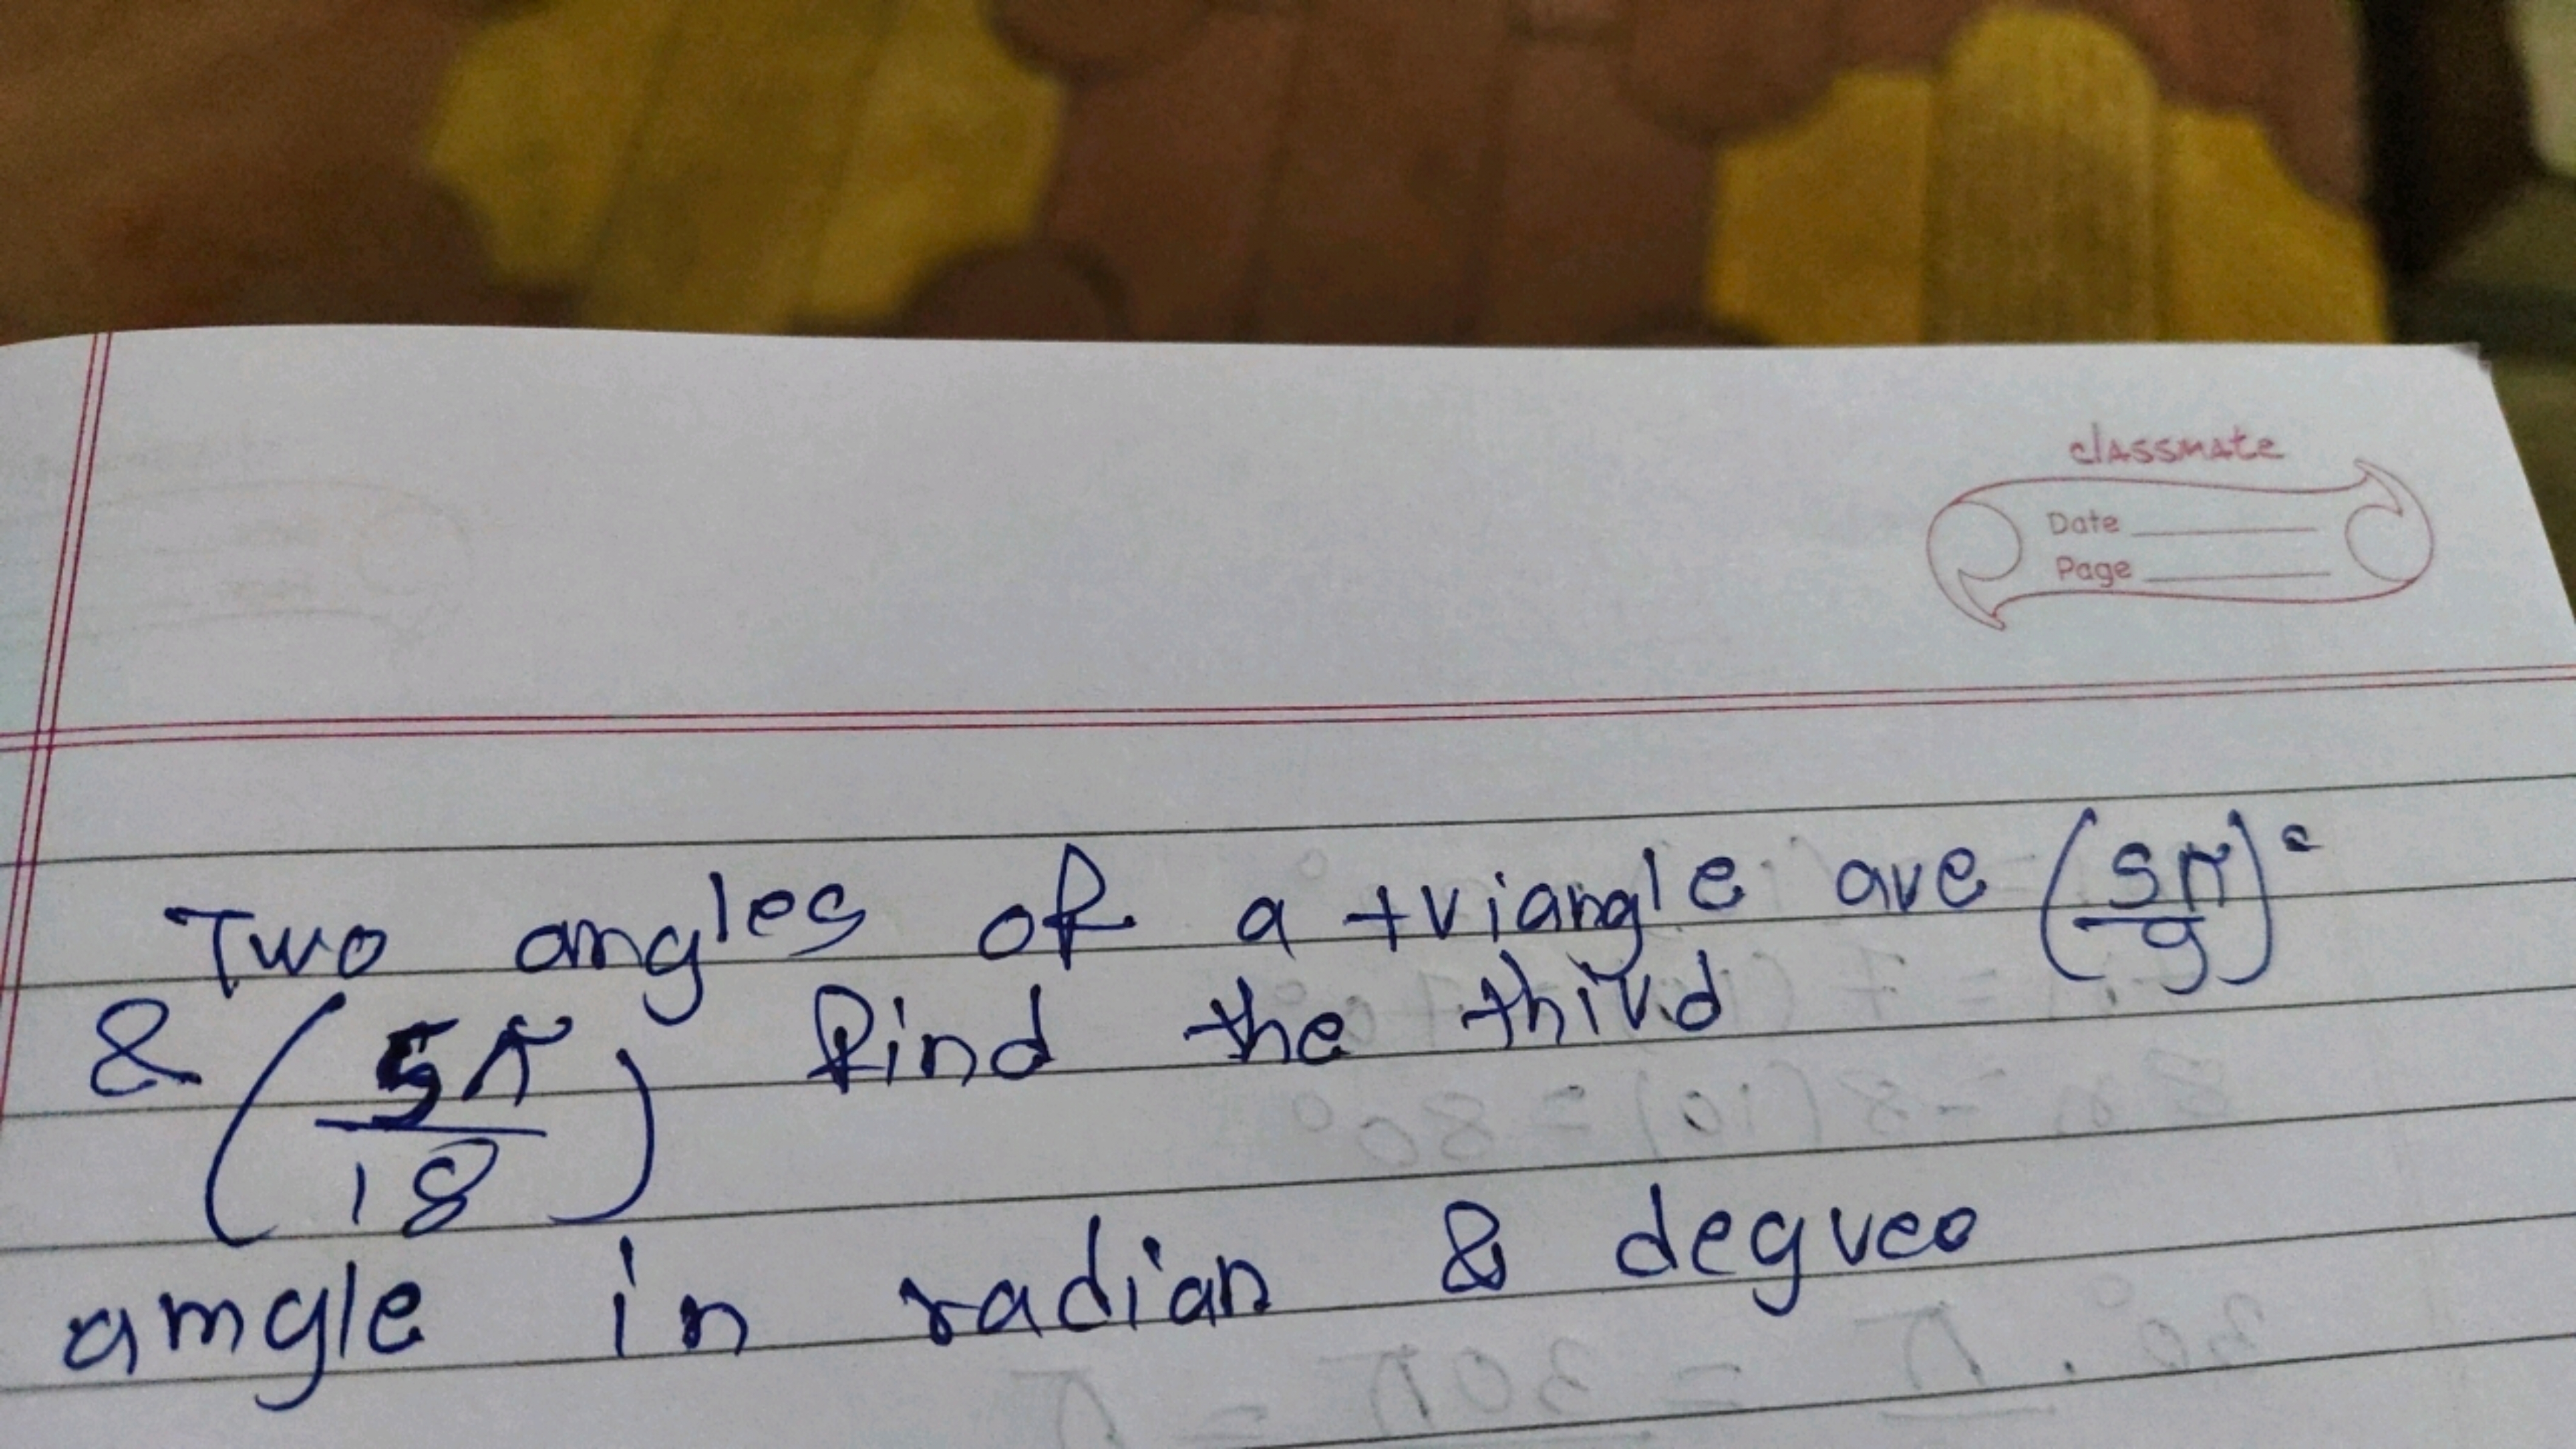 classmate
Date
Page
Two angles of a triangle are (5π/9)ᶜ
& (5π/18) find the third
angle in radian & degree